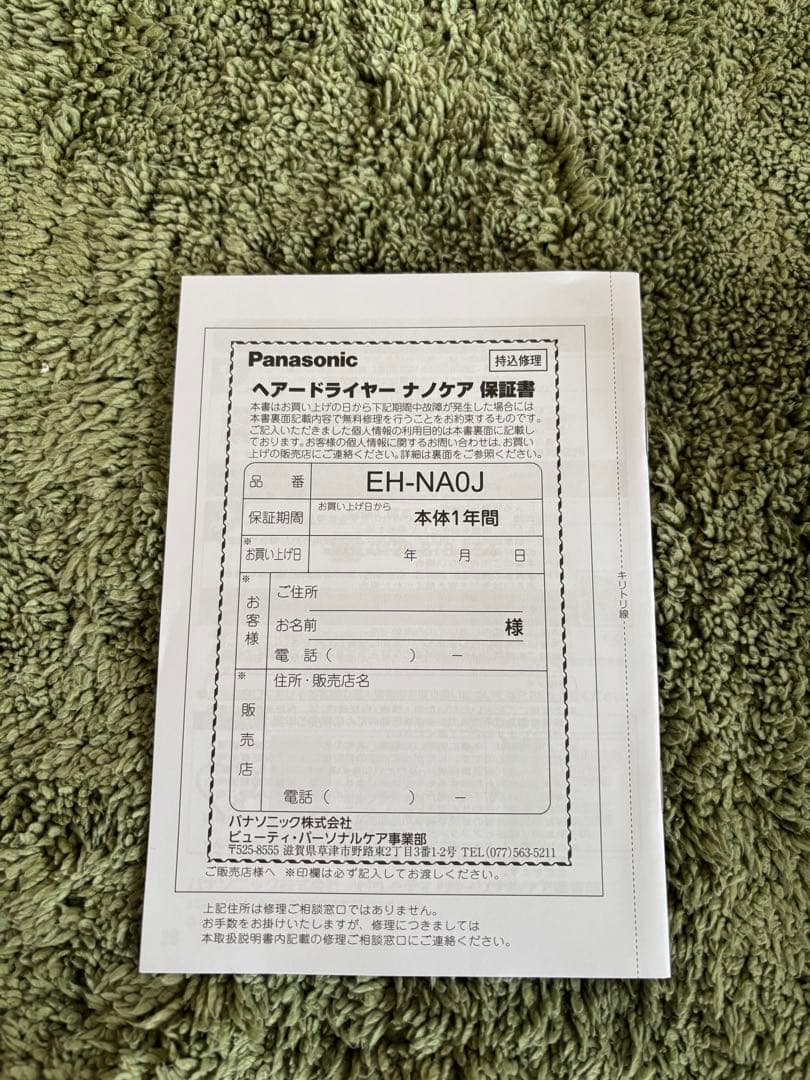 Panasonic
持込修理
ヘアードライヤー ナノケア 保証書
本書はお買い上げの日から下記期間中故障が発生した場合には
本書裏面記載内容で無料修理を行うことをお約束するものです。
ご記入いただきました個人情報の利用目的は本書裏面に記載し
ております。お客様の個人情報に関するお問い合わせは、お買い
上げの販売店にご連絡ください。詳細は裏面をご参照ください。
品 番 EH-NA0J
保証期間 お買い上げ日から 本体1年間
※お買い上げ日 年 月 日
※お客様
ご住所
お名前 様
電 話( ) −
※販売店
住所・販売店名
電話( ) −
パナソニック株式会社
ビューティ・パーソナルケア事業部
〒525-8555 滋賀県草津市野路東2丁目3番1-2号 TEL(077)563-5211
ご販売店様へ ※印欄は必ず記入してお渡しください。
上記住所は修理ご相談窓口ではありません。
お手数をお掛けいたしますが、修理につきましては
本取扱説明書内記載の修理ご相談窓口にご連絡ください。
キリトリ線